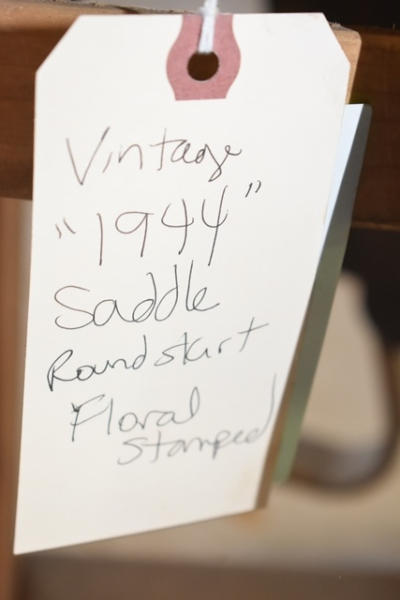 Vintage
"1944"
Saddle
Round skirt
Floral
Stamped